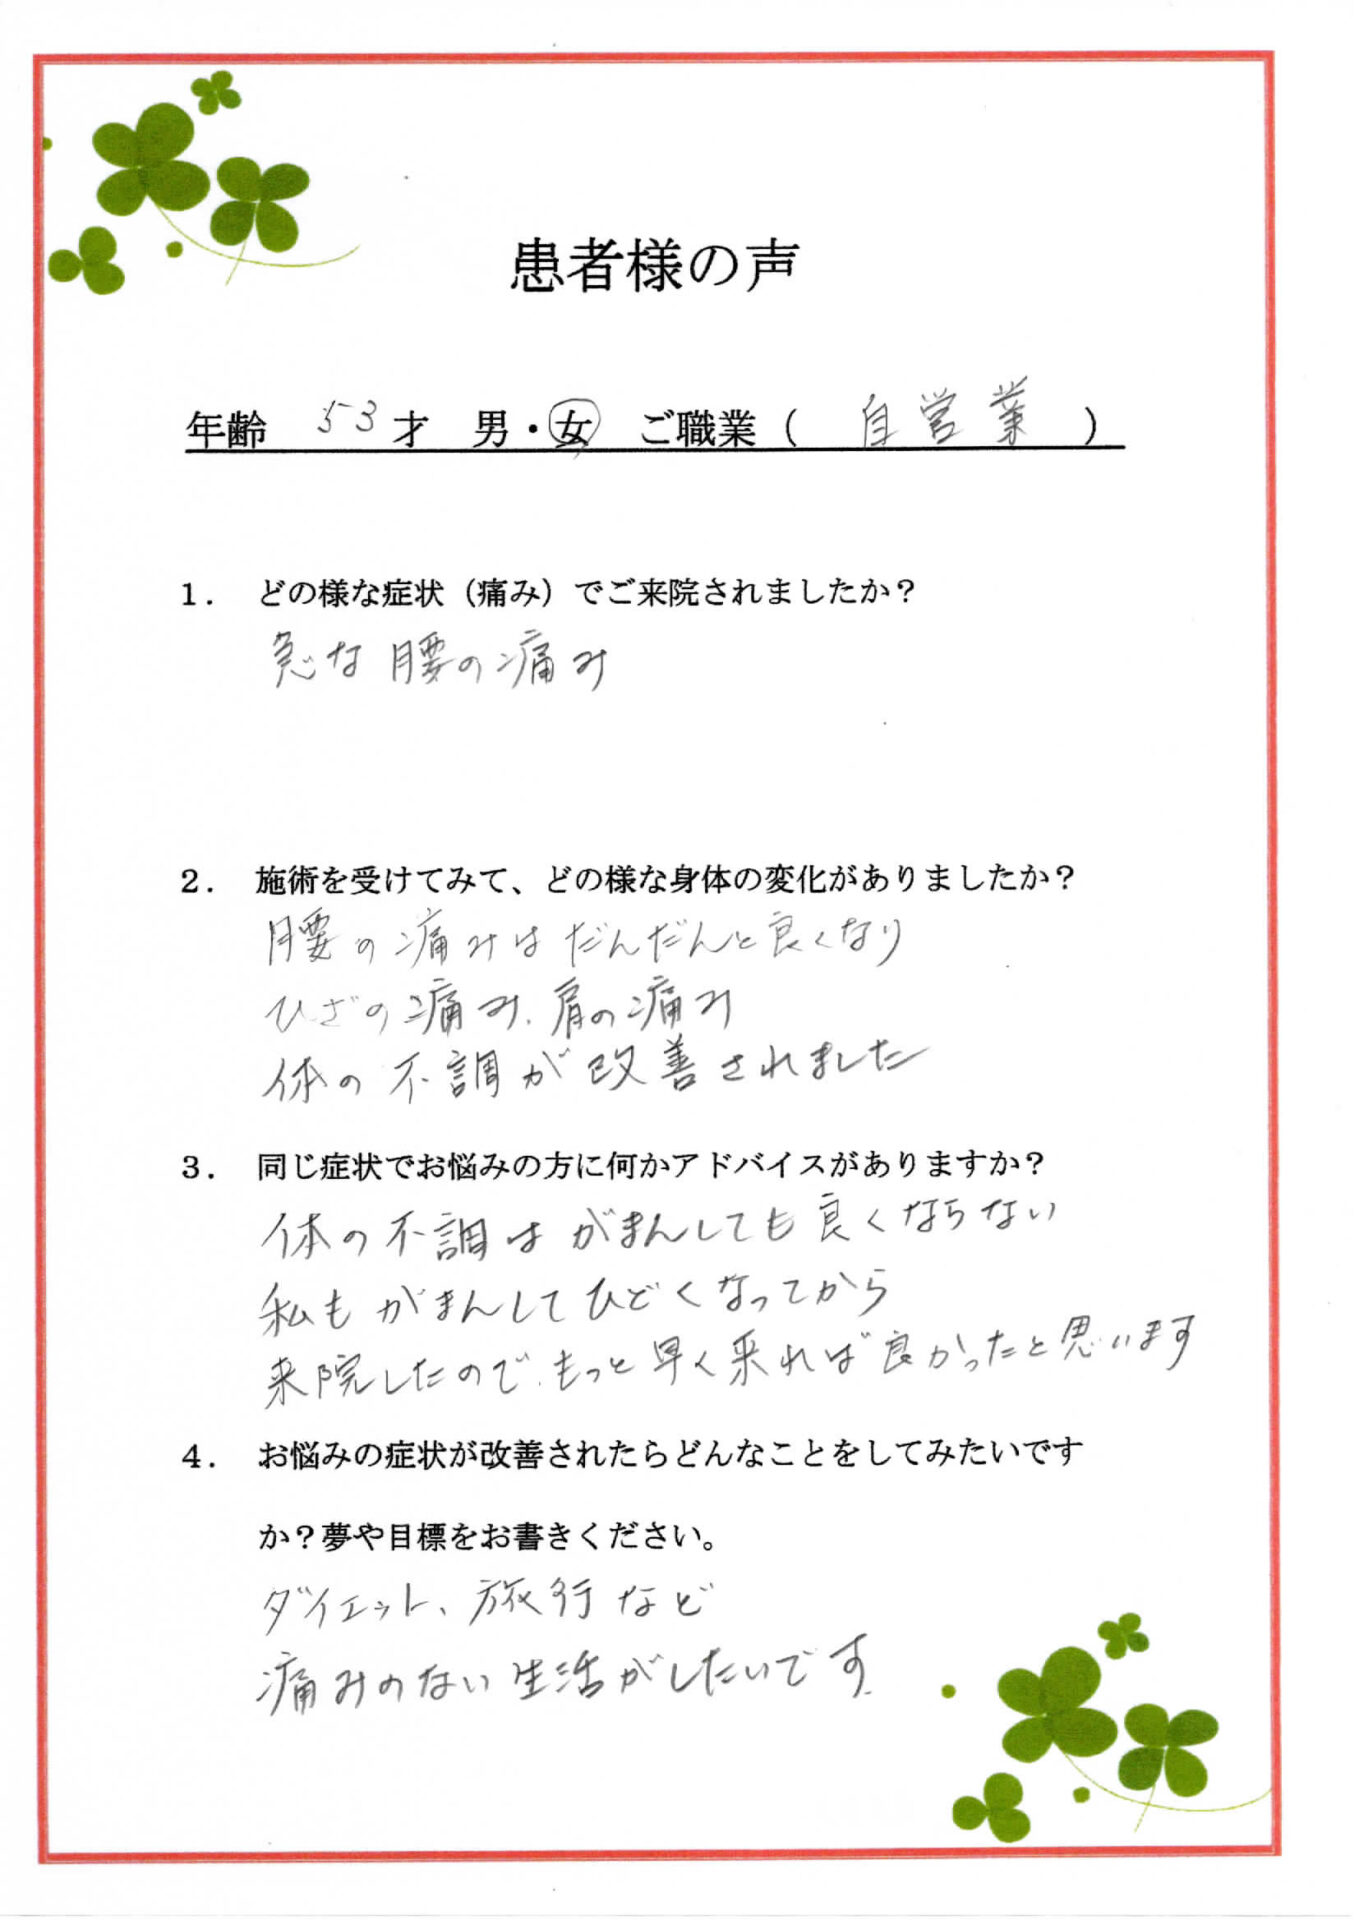 患者様の声
年齢 53才 男・女 ご職業（ 自営業 ）
1． どの様な症状（痛み）でご来院されましたか？
急な腰の痛み
2． 施術を受けてみて、どの様な身体の変化がありましたか？
腰の痛みはだんだんと良くなり
ひざの痛み、肩の痛み
体の不調が改善されました
3． 同じ症状でお悩みの方に何かアドバイスがありますか？
体の不調はがまんしても良くならない
私もがまんしてひどくなってから
来院したので、もっと早く来れば良かったと思います
4． お悩みの症状が改善されたらどんなことをしてみたいです
か？夢や目標をお書きください。
ダイエット、旅行など
痛みのない生活がしたいです